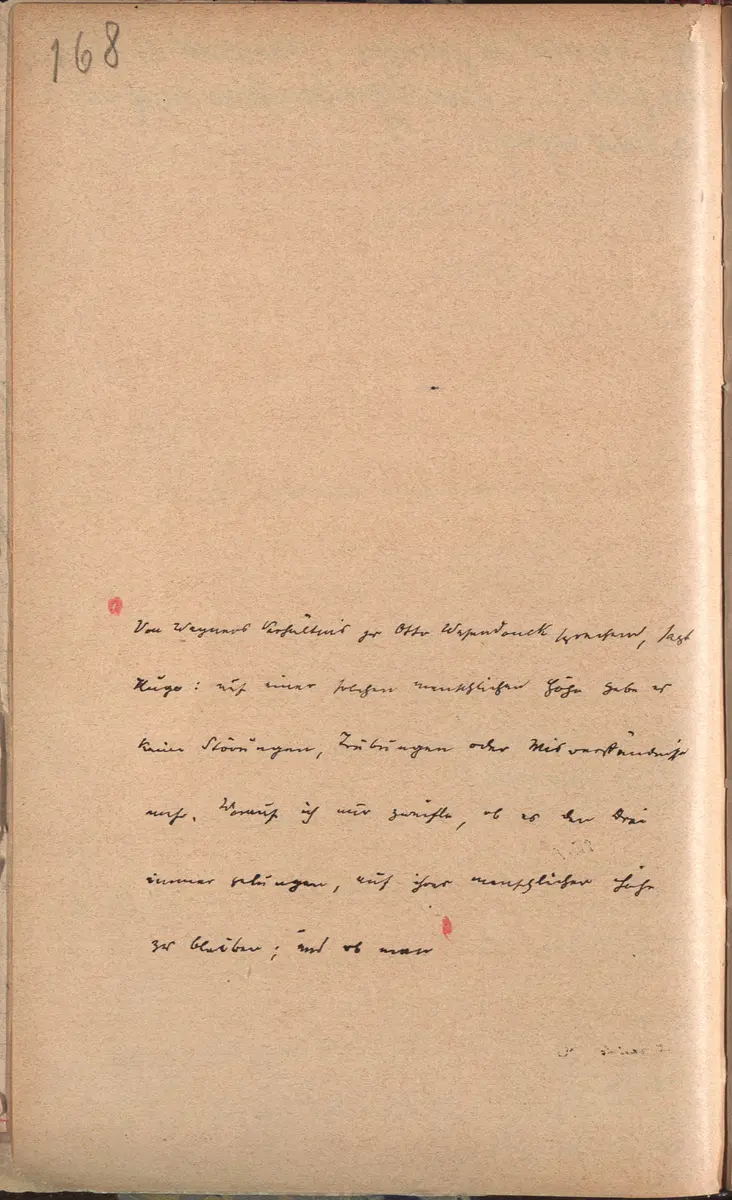 168
Von Wagners Verhältnis zu Otto Wesendonck sprechend, sagt
Hugo: auf einer solchen menschlichen Höhe gebe es
keine Störungen, Trübungen oder Misverständnisse
mehr. Worauf ich nur zweifle, ob es den Drei
immer gelungen, auf ihrer menschlichen Höhe
zu bleiben; und ob man